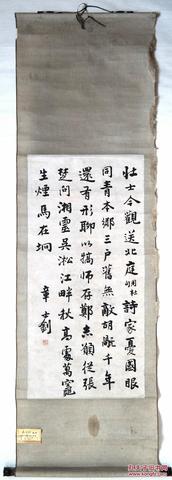 壮士今觀送北庭用杜句詩家憂國眼
同青本鄉三戶舊無敵胡亂千年
還有形聊以犒師存鄭志顧從張
楚問湘靈吳淞江畔秋高處萬竈
生煙馬在坰
章士釗